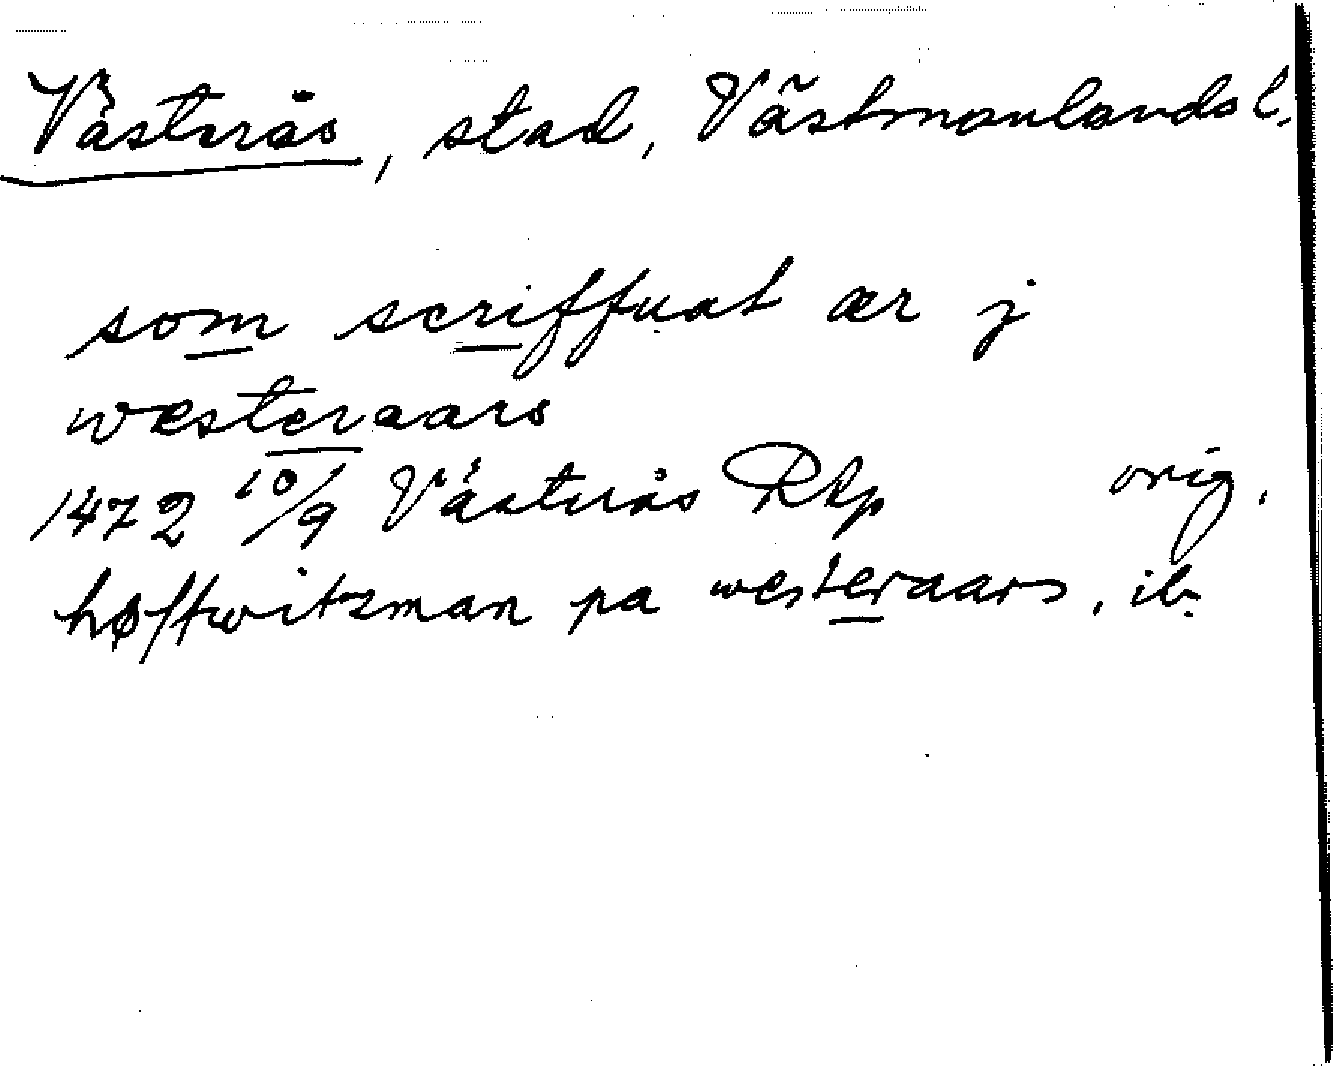 Västerås, stad, Västmanlands l.
som scriffuat ær j
wæsteraars
1472 10/9 Västerås RKp orig.
høffwitzman pa westeraars, ib.